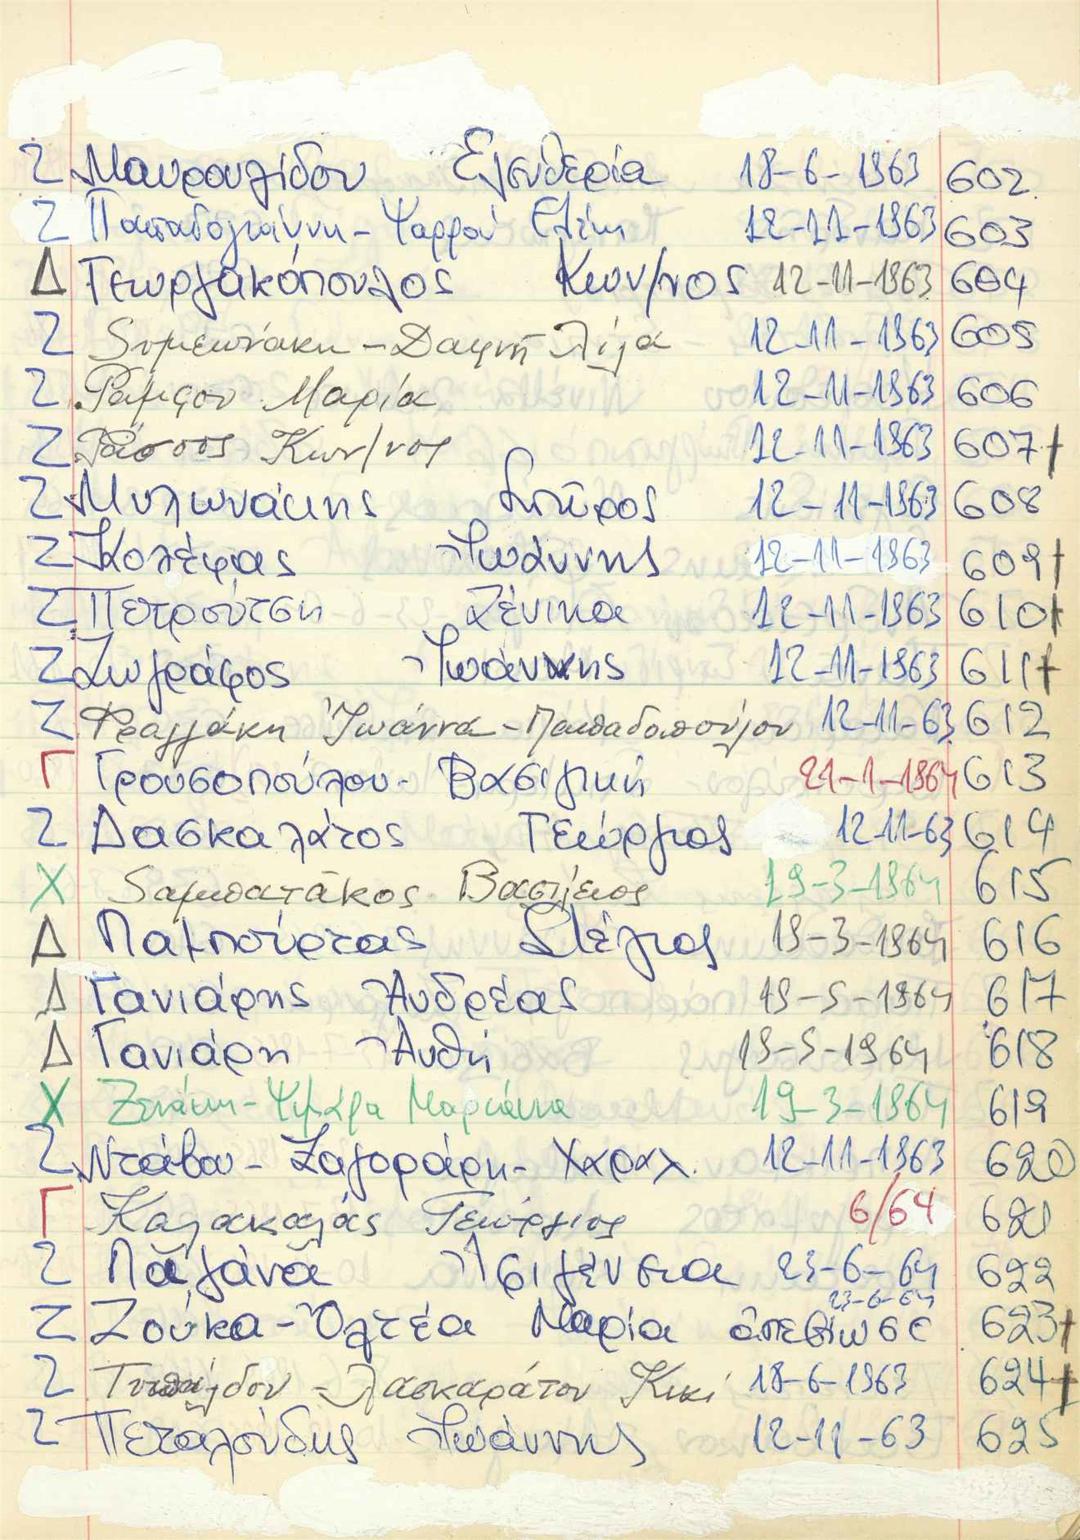 Ζ Μαυρουλίδου Ελευθερία 18-6-1963 602
Ζ Παπαδογιάννη-Ψαρρού Ελένη 12-11-1963 603
Δ Γεωργακόπουλος Κων/νος 12-11-1963 604
Ζ Συμεωνάκη-Δαφνή Λίλα 12-11-1963 605
Ζ Ράμφου Μαρία 12-11-1963 606
Ζ Ράσσος Κων/νος 12-11-1963 607 †
Ζ Μυλωνάκης Σπύρος 12-11-1963 608
Ζ Κολέφας Ιωάννης 12-11-1963 609 †
Ζ Πετρούτση Ζένικα 12-11-1963 610 †
Ζ Ζωγράφος Ιωάννης 12-11-1963 611 †
Ζ Φραγγάκη Ιωάννα-Παπαδοπούλου 12-11-63 612
Γ Γρουσοπούλου-Βασιλική 21-1-1964 613
Ζ Δασκαλάτος Γεώργιος 12-11-63 614
Χ Σαμπατάκος Βασίλειος 19-3-1964 615
Δ Παμπούρτας Στέλιος 19-3-1964 616
Δ Γανιάρης Ανδρέας 19-5-1964 617
Δ Γανιάρη Ανθή 19-5-1964 618
Χ Ξενάκη-Ψιμάρα Μαριάννα 19-3-1964 619
Ζ Ντάβου-Ζαγοράρη-Χαραλ. 12-11-1963 620
Γ Καλακαλάς Γεώργιος 6/64 621
Ζ Παλάνα Αριλένσια 23-6-64 622
23-6-64
Ζ Ζούκα-Όλτέα Μαρία απεβίωσε 623 †
Ζ Λασκαράτου Κική 18-6-1963 624 †
Ζ Πεταλούδης Ιωάννης 12-11-63 625